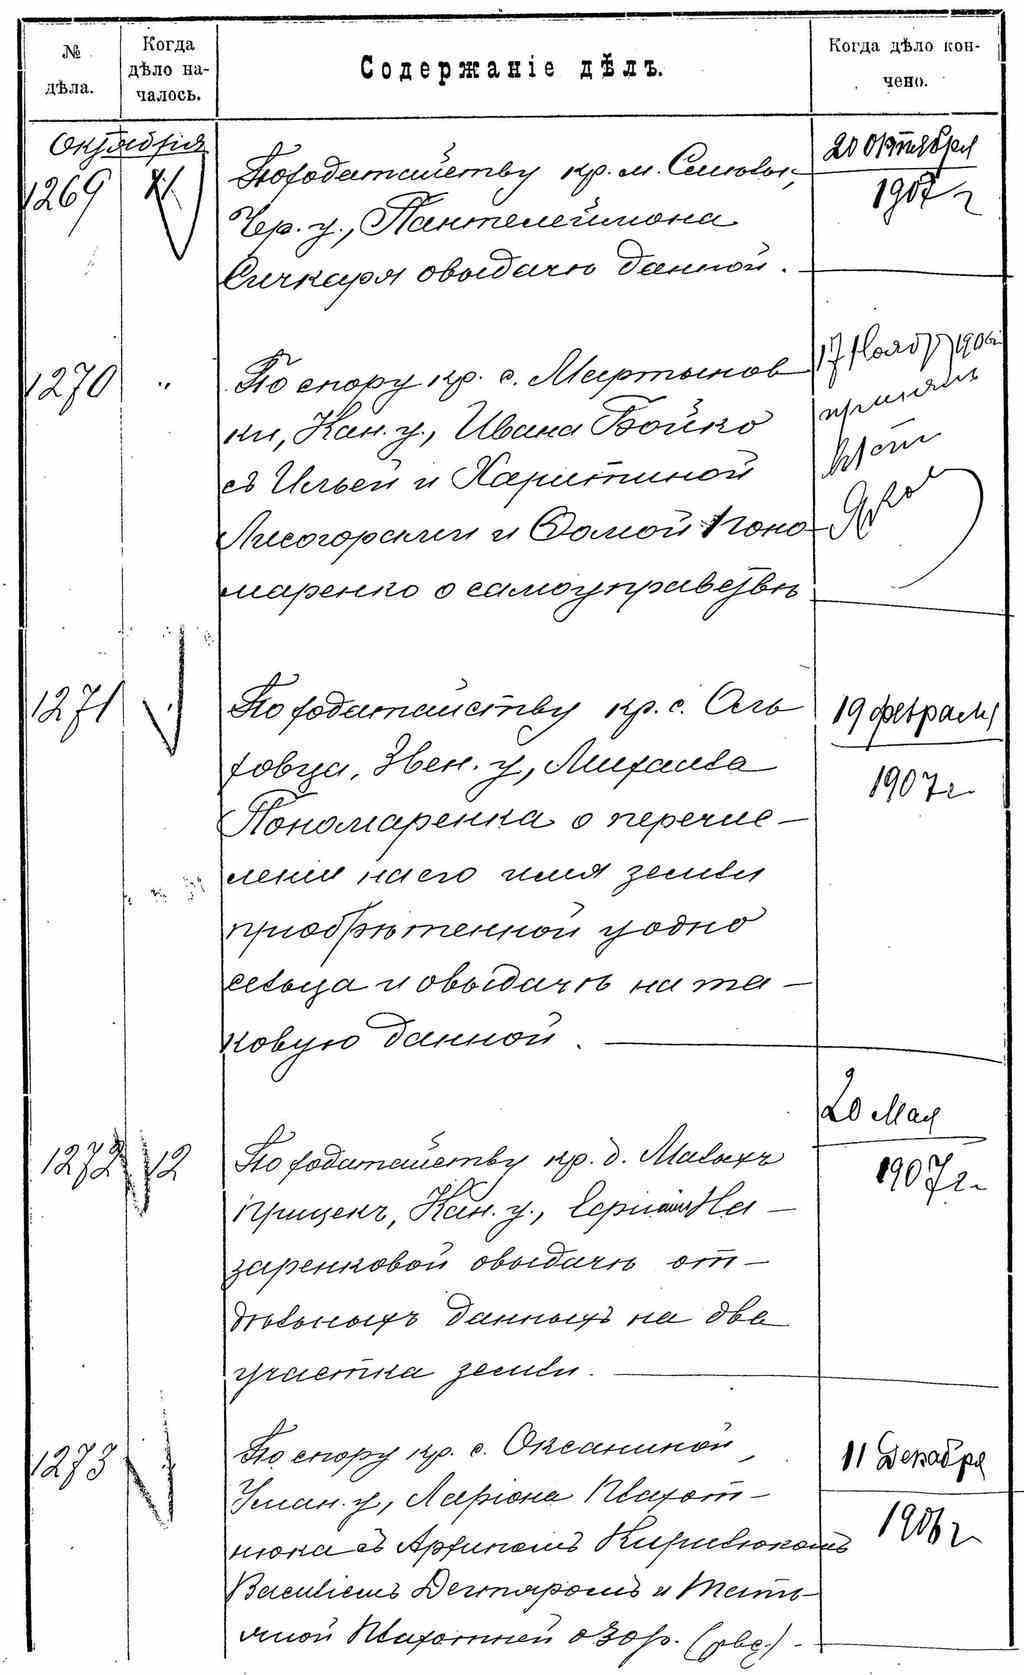 № дѣла.
Когда дѣло началось.
Содержаніе дѣлъ.
Когда дѣло кончено.
Октября
1269 11
По ходатайству кр. м. Смѣлы,
Чер. у., Пантелеймона
Сичкаря о выдачѣ данной.
20 Октября
1907 г
1270 "
По спору кр. с. Мартынов
ки, Кан. у., Ивана Бойко
съ Ильей и Харитиной
Лисогорами и Ѳомой Поно
маренко о самоуправствѣ
17 Нояб 1906 г
1271 "
По ходатайству кр. с. Оль
ховца, Звен. у., Михаила
Пономаренка о перечис-
леніи на его имя земли
пріобрѣтенной у одно
сельца и о выдачѣ на та-
ковую данной.
19 февраля
1907 г
1272 12
По ходатайству кр. д. Малыхъ
прицекъ, Кан. у., На-
заренковой о выдачѣ от-
дѣльныхъ данныхъ на два
участка земли.
20 Мая
1907 г.
1273
По спору кр. с. Оксаниной,
Уман. у., Ларіона Плахот-
нюка съ Архипомъ Кирилюкомъ
Василіемъ Дегтяромъ и Тать-
яной Плахотней о
11 Декабря
1906 г